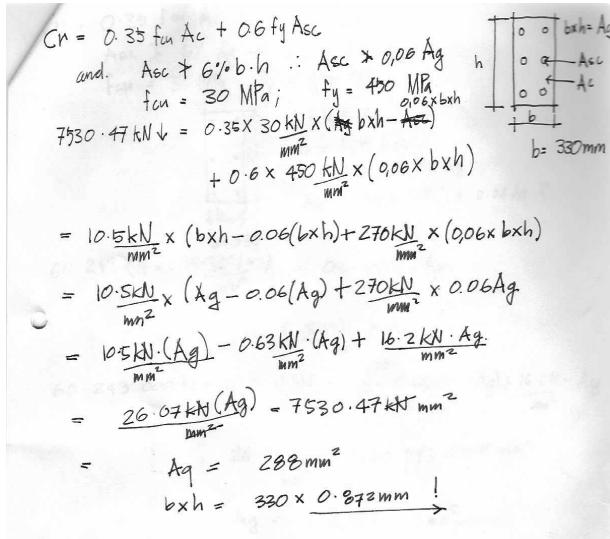 Cr = 0.35 fcu Ac + 0.6 fy Asc
and. Asc ≯ 6% b.h ∴ Asc ≯ 0,06 Ag
fcu = 30 MPa; fy = 450 MPa
0,06xbxh
7530.47 kN ↓ = 0.35 x 30 kN/mm² x (Ag bxh - Asc)
+ 0.6 x 450 kN/mm² x (0,06 x bxh)
= 10.5 kN/mm² x (bxh - 0.06(bxh) + 270 kN/mm² x (0,06 x bxh)
= 10.5 kN/mm² x (Ag - 0.06(Ag) + 270 kN/mm² x 0.06 Ag
= 10.5 kN.(Ag)/mm² - 0.63 kN/mm².(Ag) + 16.2 kN.Ag/mm²
= 26.07 kN (Ag)/mm² = 7530.47 kN mm²
= Ag = 288 mm²
bxh = 330 x 0.872mm !
bxh = Ag
h
Asc
Ac
b
b = 330mm